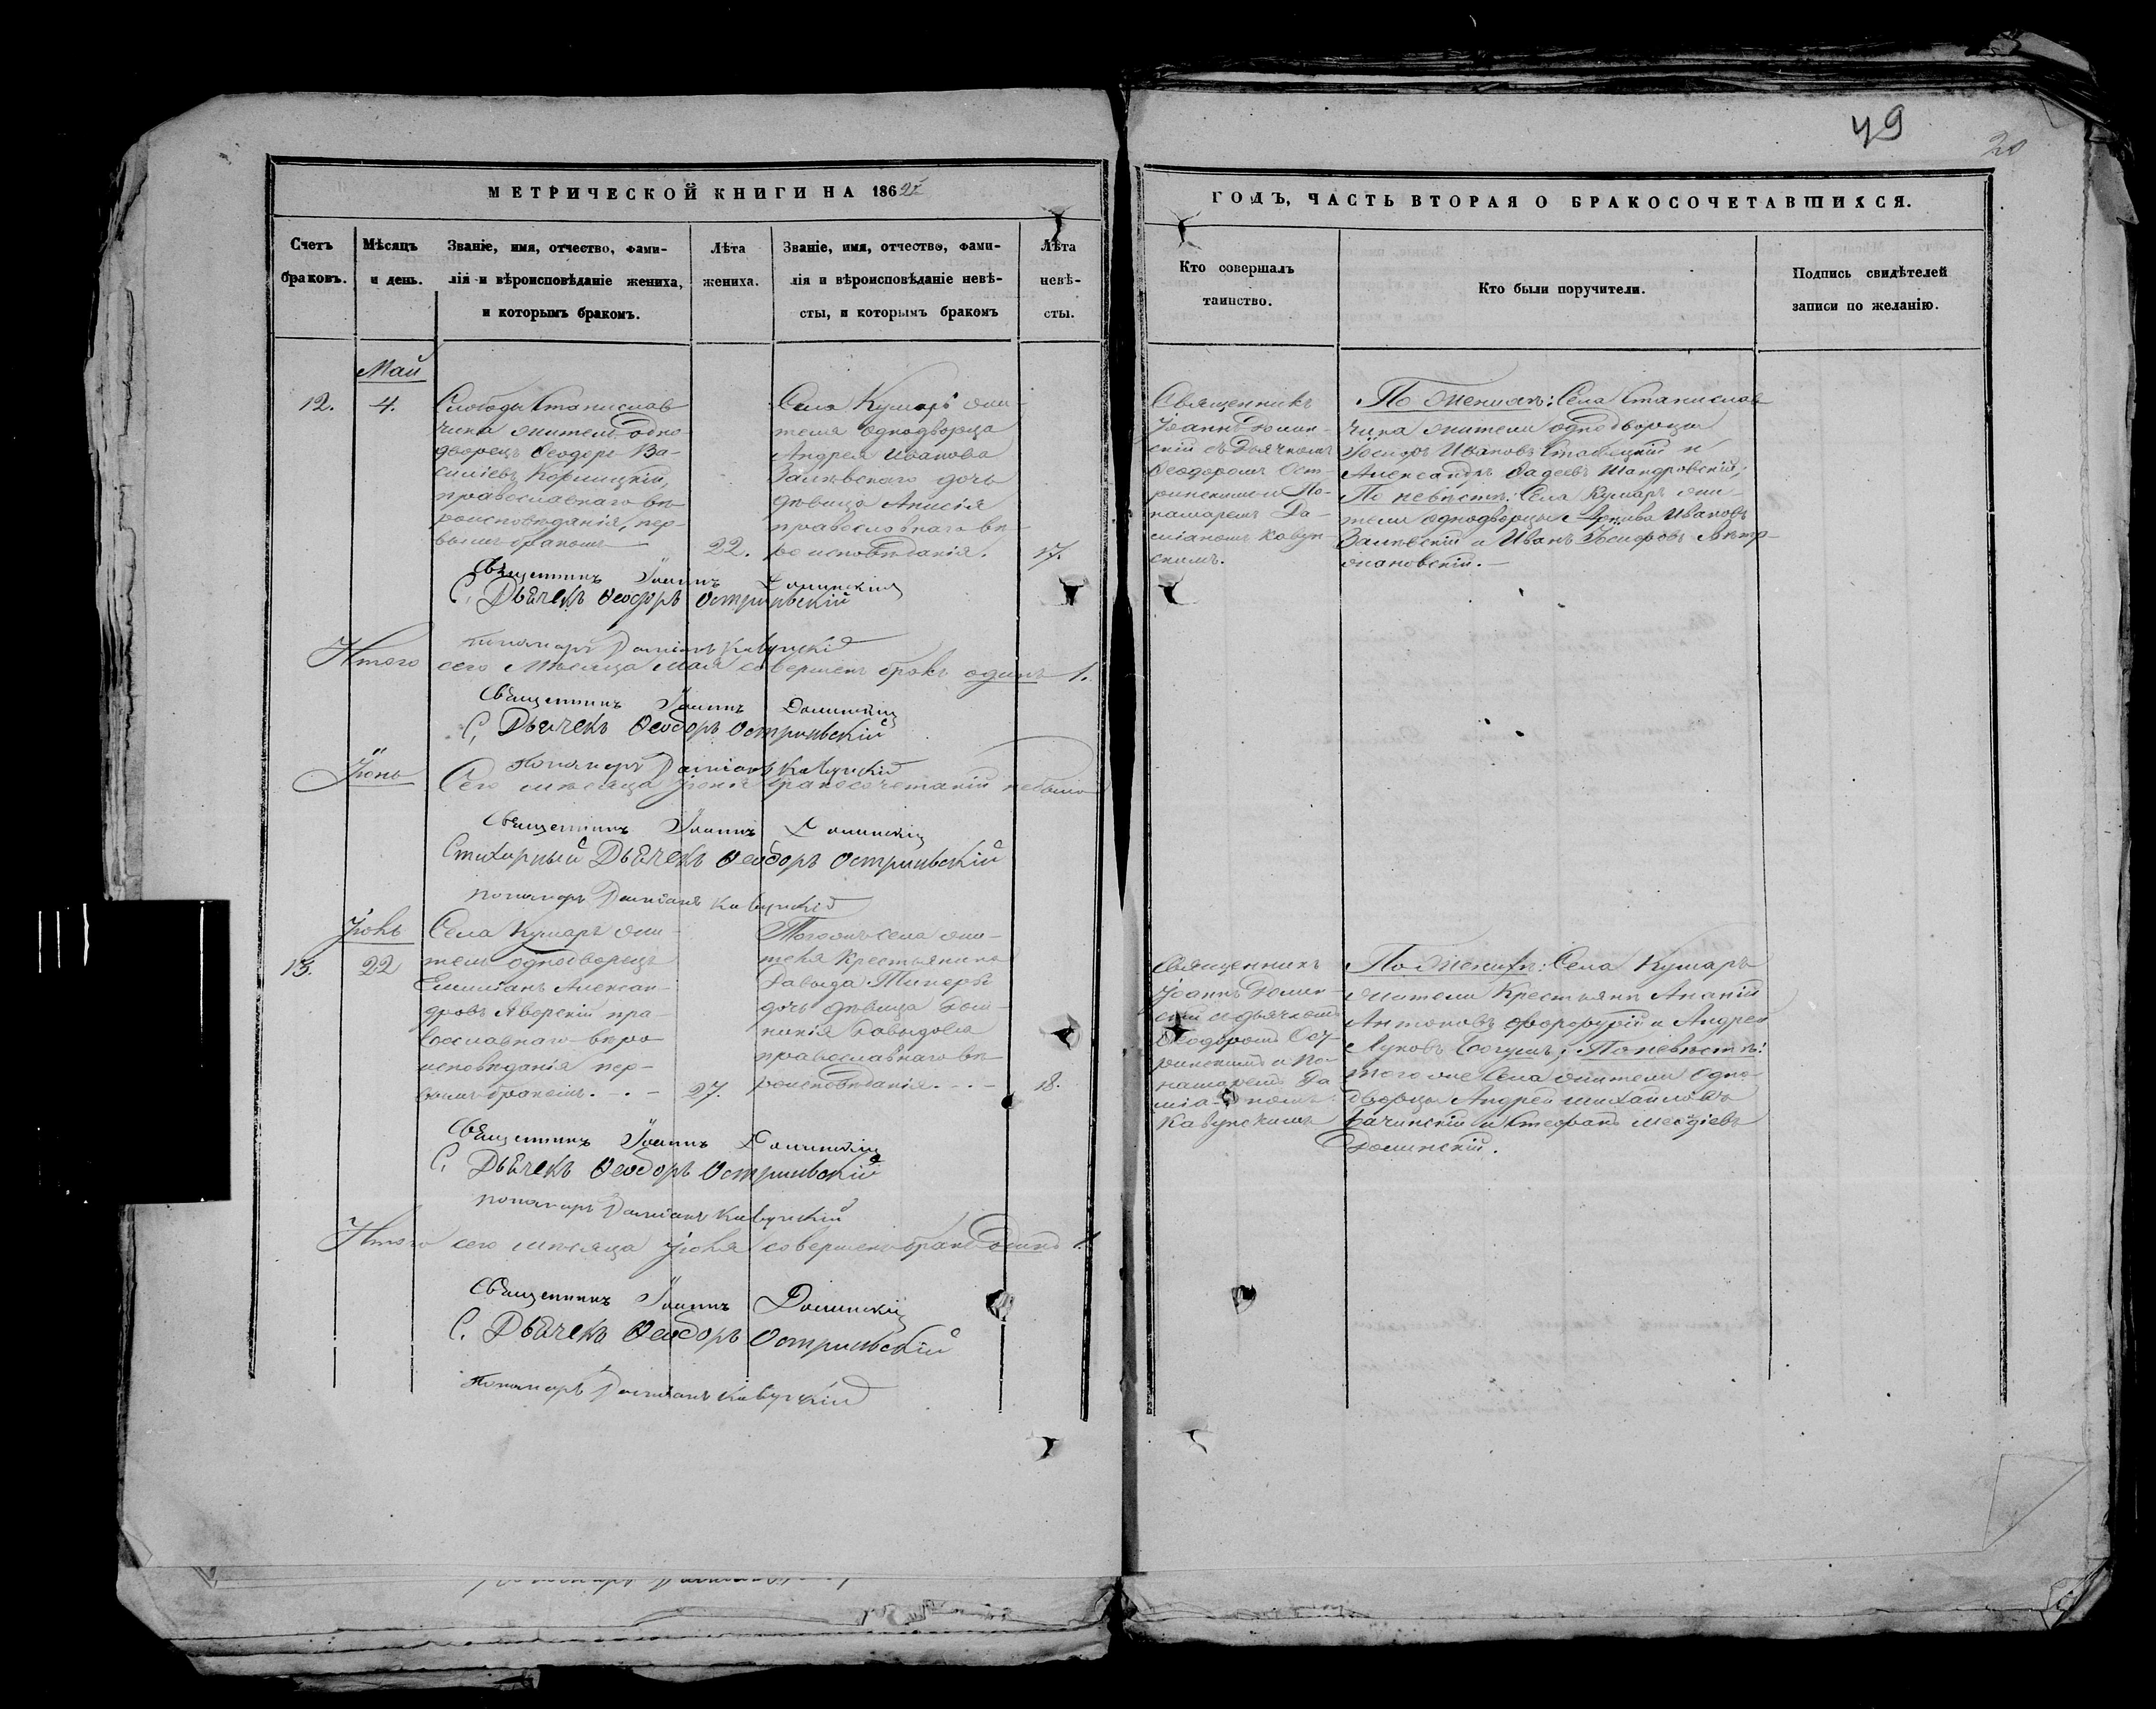 49
20
МЕТРИЧЕСКОЙ КНИГИ НА 1862й
ГОДЪ, ЧАСТЬ ВТОРАЯ О БРАКОСОЧЕТАВШИХСЯ.
Счетъ браковъ.
Мѣсяцъ и день.
Званіе, имя, отчество, фами-
лія и вѣроисповѣданіе жениха,
и которымъ бракомъ.
Лѣта жениха.
Званіе, имя, отчество, фами-
лія и вѣроисповѣданіе невѣ-
сты, и которымъ бракомъ
Лѣта невѣ-
сты.
Кто совершалъ
таинство.
Кто были поручители.
Подпись свидѣтелей
записи по желанію.
Май
12.
4.
Слободы Станислав
чика житель одно
дворецъ Ѳеодоръ Ва-
силіевъ
православнаго вѣ-
роисповѣданія, пер-
вымъ бракомъ
22.
Села Кумаръ жи-
теля однодворца
Андрея Иванова
Залѣвскаго дочь
дѣвица Анисія
православнаго вѣ-
роисповѣданія.
17.
Священникъ
Іоаннъ Долин-
скій съ Дьячкомъ
Ѳеодоромъ Ост-
ринскимъ и По-
намаремъ Да-
міаномъ Кавун-
скимъ.
По женихѣ: Села Станислав
чика жители однодворцы
Іосифъ Ивановъ и
Александръ Фадеевъ Шандровскій;
По невѣстѣ: Села Кумаръ жи-
тели однодворцы Ивановъ
Залѣвскій и Иванъ Іосифовъ
Священникъ Іоаннъ Долинскій
С. Дьячекъ Ѳеодоръ Остриньскій
пономарь Даміанъ Кавунскій
Итого сего мѣсяца Мая совершенъ бракъ одинъ 1.
Священникъ Іоаннъ Долинскій
С. Дьячекъ Ѳеодоръ Остриньскій
Пономарь Даміанъ Кавунскій
Іюнь
Сего мѣсяца Іюня бракосочетаній небыло
Священникъ Іоаннъ Долинскій
Стихарный Дьячекъ Ѳеодоръ Остриньскій
пономарь Даміанъ Кавунскій
Іюль
13.
22
Села Кумаръ жи-
тель однодворецъ
Емиліанъ Алексан-
дровъ Яворскій пра-
вославнаго вѣро
исповѣданія пер-
вымъ бракомъ.
27.
Тогожъ села жи-
теля Крестьянина
Давыда
дочь дѣвица
Давыдова
православнаго вѣ-
роисповѣданія.
18.
Священникъ
Іоаннъ Долин-
скій и дьячкомъ
Ѳеодоромъ Ост-
ринскимъ и По-
намаремъ Да
міаномъ
Кавунскимъ
По женихѣ: Села Кумаръ
жители Крестьяне Ананій
Антоновъ и Андрей
Луковъ Богушъ; По невѣстѣ:
того же Села жители Одно-
дворцы Андрей Михайловъ
Бачинскій и Стефанъ
Долинскій.
Священникъ Іоаннъ Долинскій
С. Дьячекъ Ѳеодоръ Остриньскій
пономарь Даміанъ Кавунскій
Итого сего мѣсяца Іюля совершенъ бракъ одинъ 1.
Священникъ Іоаннъ Долинскій
С. Дьячекъ Ѳеодоръ Остриньскій
Пономарь Даміанъ Кавунскій